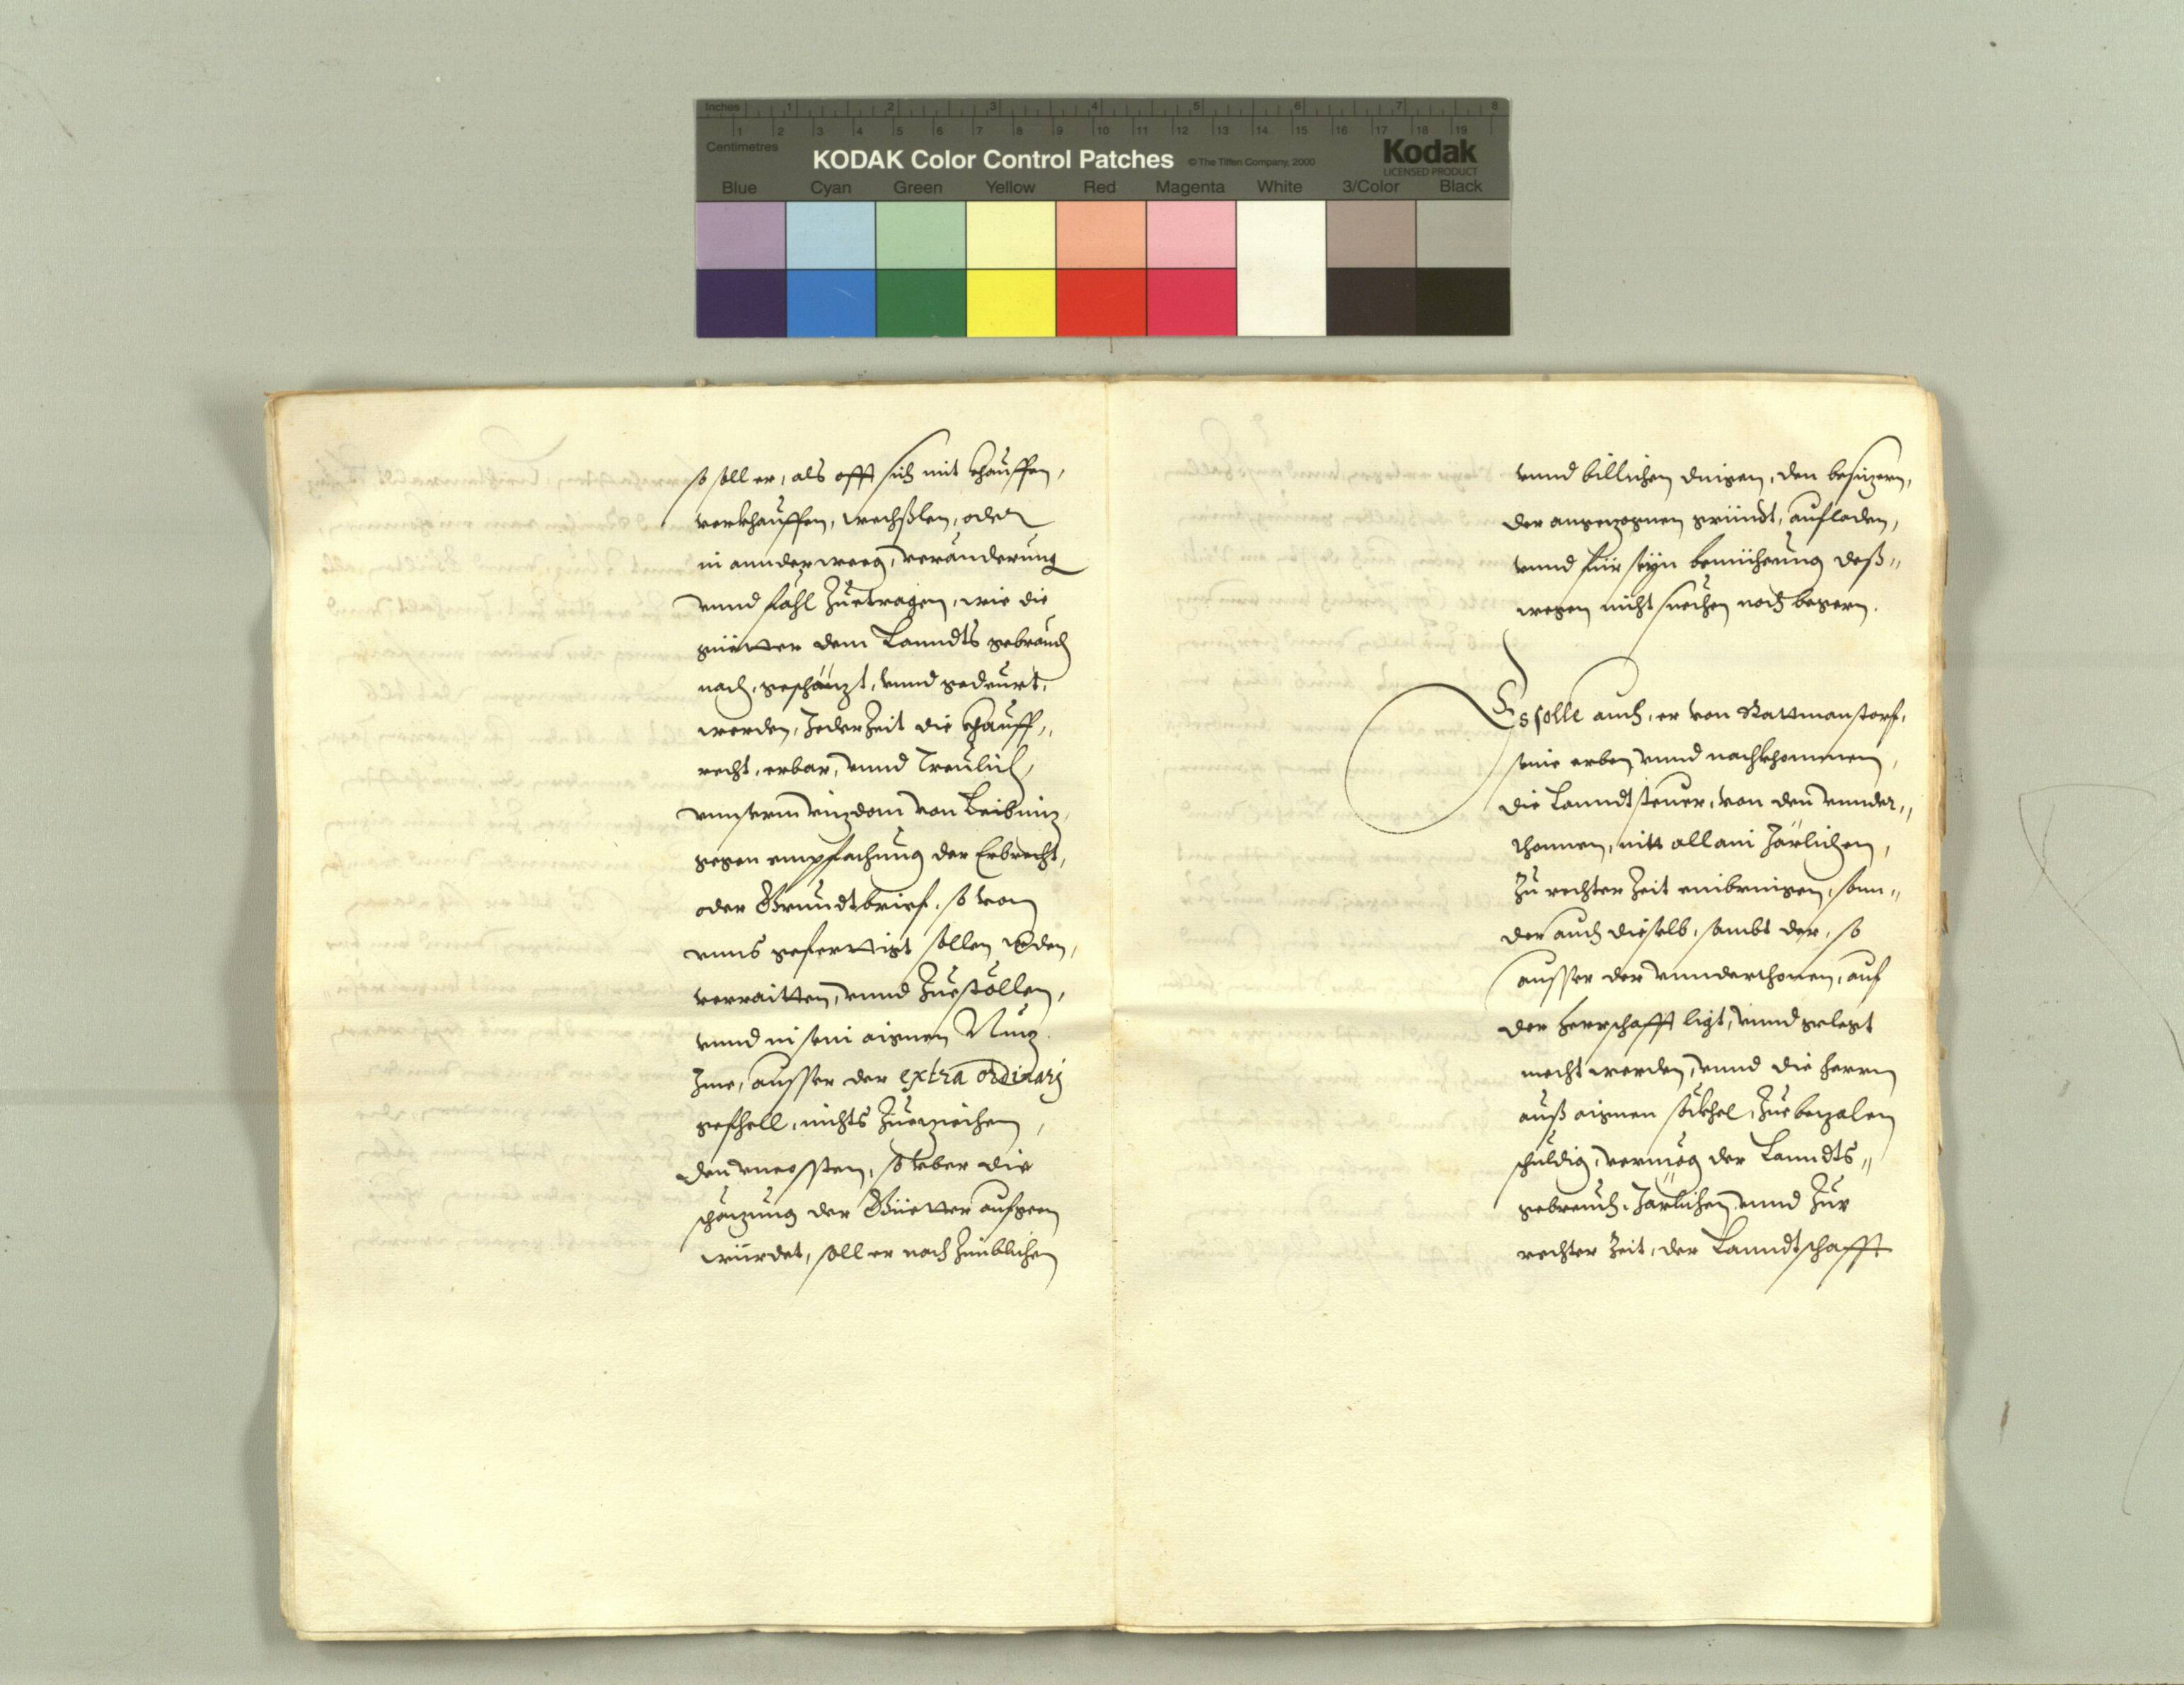 Inches 1 2 3 4 5 6 7 8
1 2 3 4 5 6 7 8 9 10 11 12 13 14 15 16 17 18 19
Centimetres
KODAK Color Control Patches © The Tiffen Company, 2000 Kodak
LICENSED PRODUCT
Blue Cyan Green Yellow Red Magenta White 3/Color Black
so soll er, als offt sich mit khauffen,
verkhauffen, wechßlen, oder
in annder weeg, veränderung
vnnd fähl zuetragen, wie die
güetter dem Lanndts gebrauch
nach, geschäzt, vnnd
werden, Jederzeit die khauff,,
recht, erbar, vnnd Treulich,
vnnserm vizdom von Leibniz,
gegen empfachung der Erbrecht,
oder Grundtbrief, so von
vnns gefertigt sollen werden,
verraitten, vnnd zuestöllen,
vnnd in sein aignen Nuz
Ime, ausser der extra ordinarj
gefhell, nichts zueziehen,
den vncossten, so vber die
schäzung der Güetter aufgeen
würdet, soll er nach zimblichen
vnnd billichen dingen, den besizern,
der angezognen gründt, aufladen,
vnnd für seyn bemüehung deß,,
wegen nicht suechen noch begern.
Es solle auch, er von Rattmanstorf,
seine erben vnnd nachkhommen,
die Lanndtsteuer, von den vnnder,,
thonnen, nitt allain Järlichen,
zu rechter Zeit einbringen, sonn,,
der auch dieselb, sambt der, so
ausser der vnnderthonen, auf
der herrschafft ligt, vnnd gelegt
mecht werden, vnnd die herrn
auß aignen söckhel, zuebezalen
schuldig, vermög der Lanndts,,
gebreuch, Järlichen vnnd zur
rechter Zeit, der Lanndtschafft